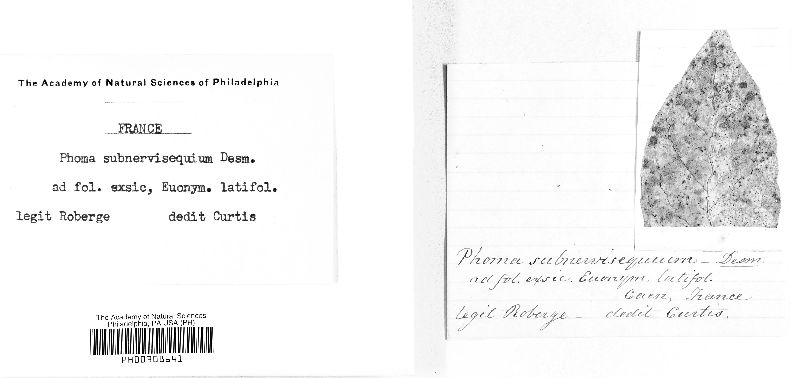 The Academy of Natural Sciences of Philadelphia
FRANCE
Phoma subnervisequium Desm.
ad fol. exsic, Euonym. latifol.
legit Roberge dedit Curtis
The Academy of Natural Sciences
Philadelphia, PA USA (PH)
Phoma subnervisequum - Desm
ad fol. exsic. Euonym. latifol.
Caen, France.
legit Roberge - dedit Curtis.